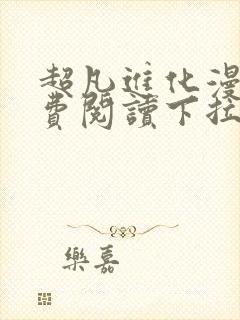 超凡進化漫
費閱讀下拉
樂嘉